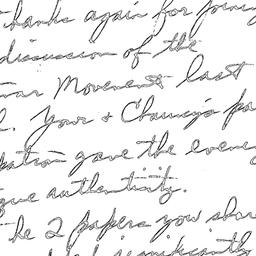 thanks again for joining
discussion of the
war Movement last
. Your & Chauncy's pa
pation gave the evening
que authenticity.
he 2 papers you shar
significantly